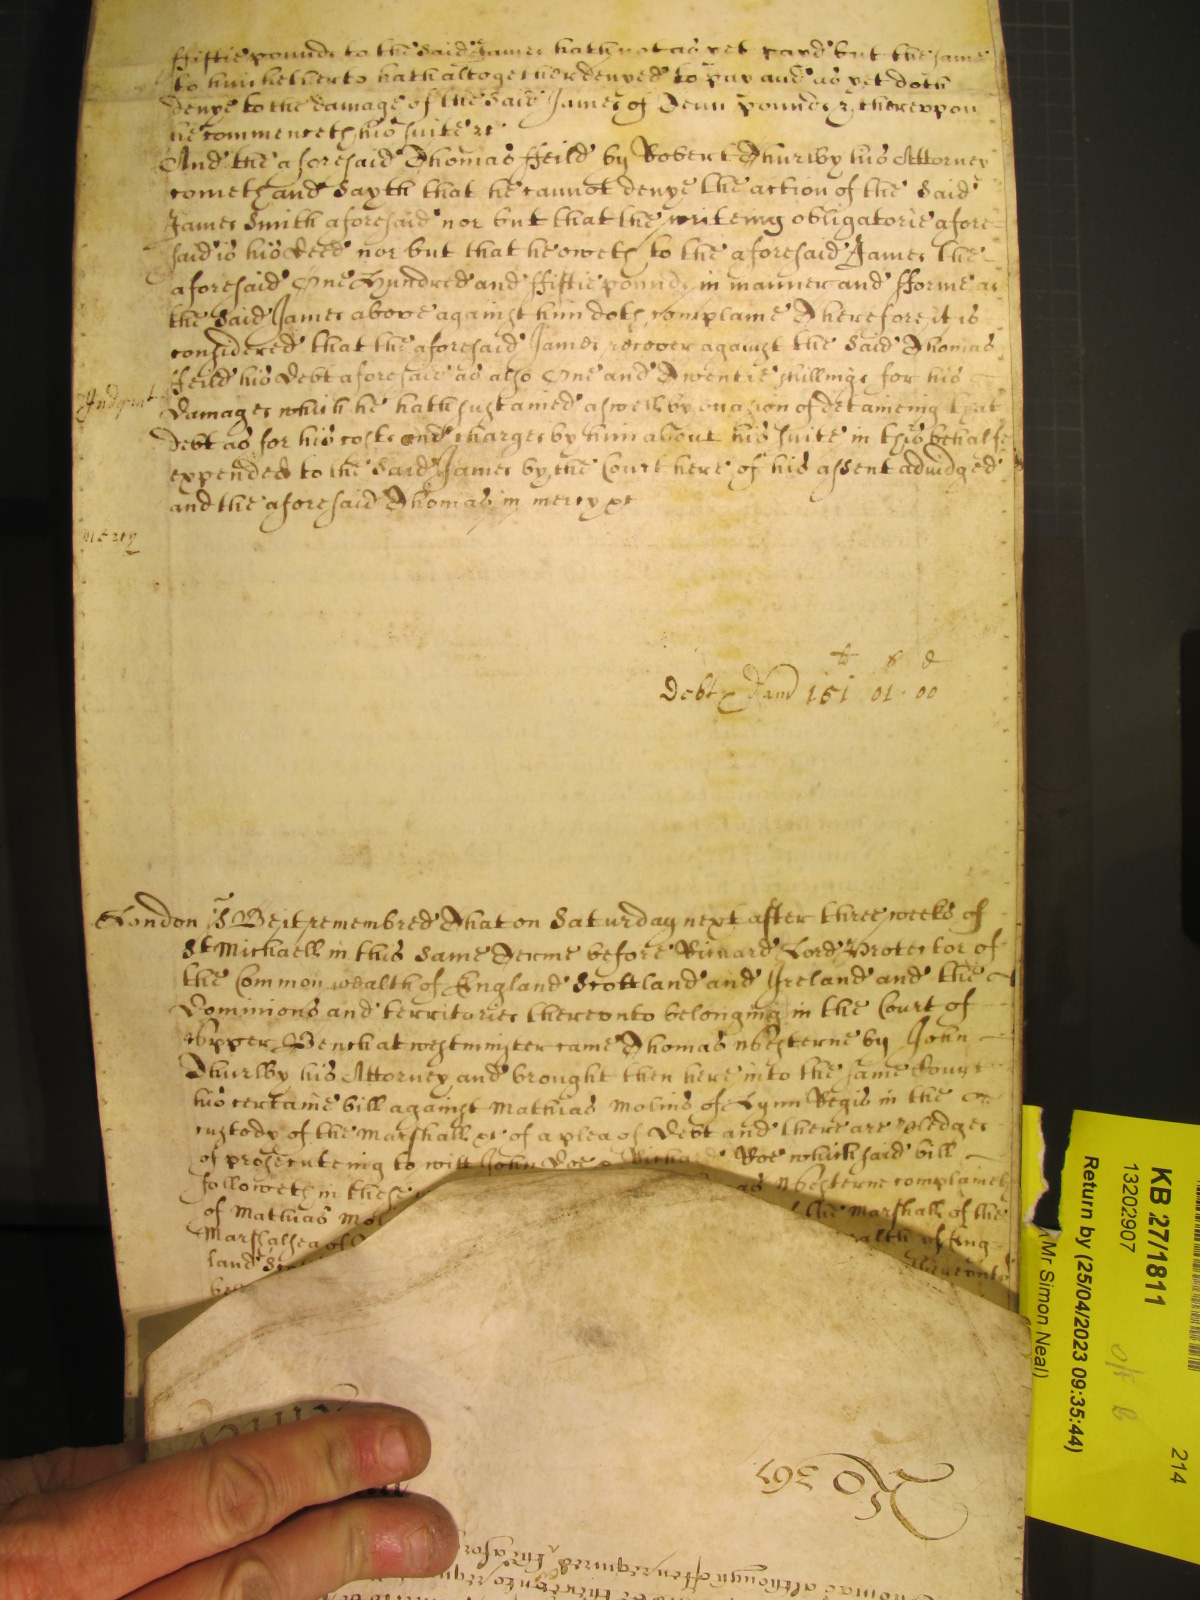 ffiftie pounds to the said James hath not as yet payd but the same
to him hitherto hath altogether denyed to pay and as yet doth
denye to the damage of the said James of Tenn pounds & thereupon
he commenceth his suite &c
And the aforesaid Thomas ffeild by Robert Thurlby his Attorney
cometh and sayth that he cannot denye the action of the said
James Smith aforesaid nor but that the writeing obligatorie afore-
said is his deed nor but that he oweth to the aforesaid James the
aforesaid One Hundred and ffiftie pounds in manner and fforme as
the said James above against him doth complaine Therefore it is
considered that the aforesaid James recover against the said Thomas
ffeild his debt aforesaid as also One and Twentie shillings for his
Judgmt
damages which he hath sustained aswell by occasion of detaineing that
debt as for his costs and charges by him about his suite in this behalfe
expended to the said James by the Court here of his assent adiudged
and the aforesaid Thomas in mercy &c
mercy
li s d
Debt & Dam 151 01 00
London ss Be it remembred That on Saturday next after three weeks of
St Michaell in this same Terme before Richard Lord Protector of
the Common wealth of England Scottland and Ireland and the
Dominions and territories thereunto belonging in the Court of
Upper Bench at westminster came Thomas Westerne by John
Thurlby his Attorney and brought then here into the same Court
his certaine bill against Mathias Molins of Lynn Regis in the
custody of the Marshall &c of a plea of debt and there are pledges
of prosecuteing to witt John Doe & Richard Roe which said bill
followeth in these as Westerne complaineth
of Mathias Mol the Marshall of the
Marshalsea of ealth of Eng-
land thereunto
No 367
Thomas although often required the afor
KB 27/1811
13202907
Return by (25/04/2023 09:35:44)
Mr Simon Neal)
214